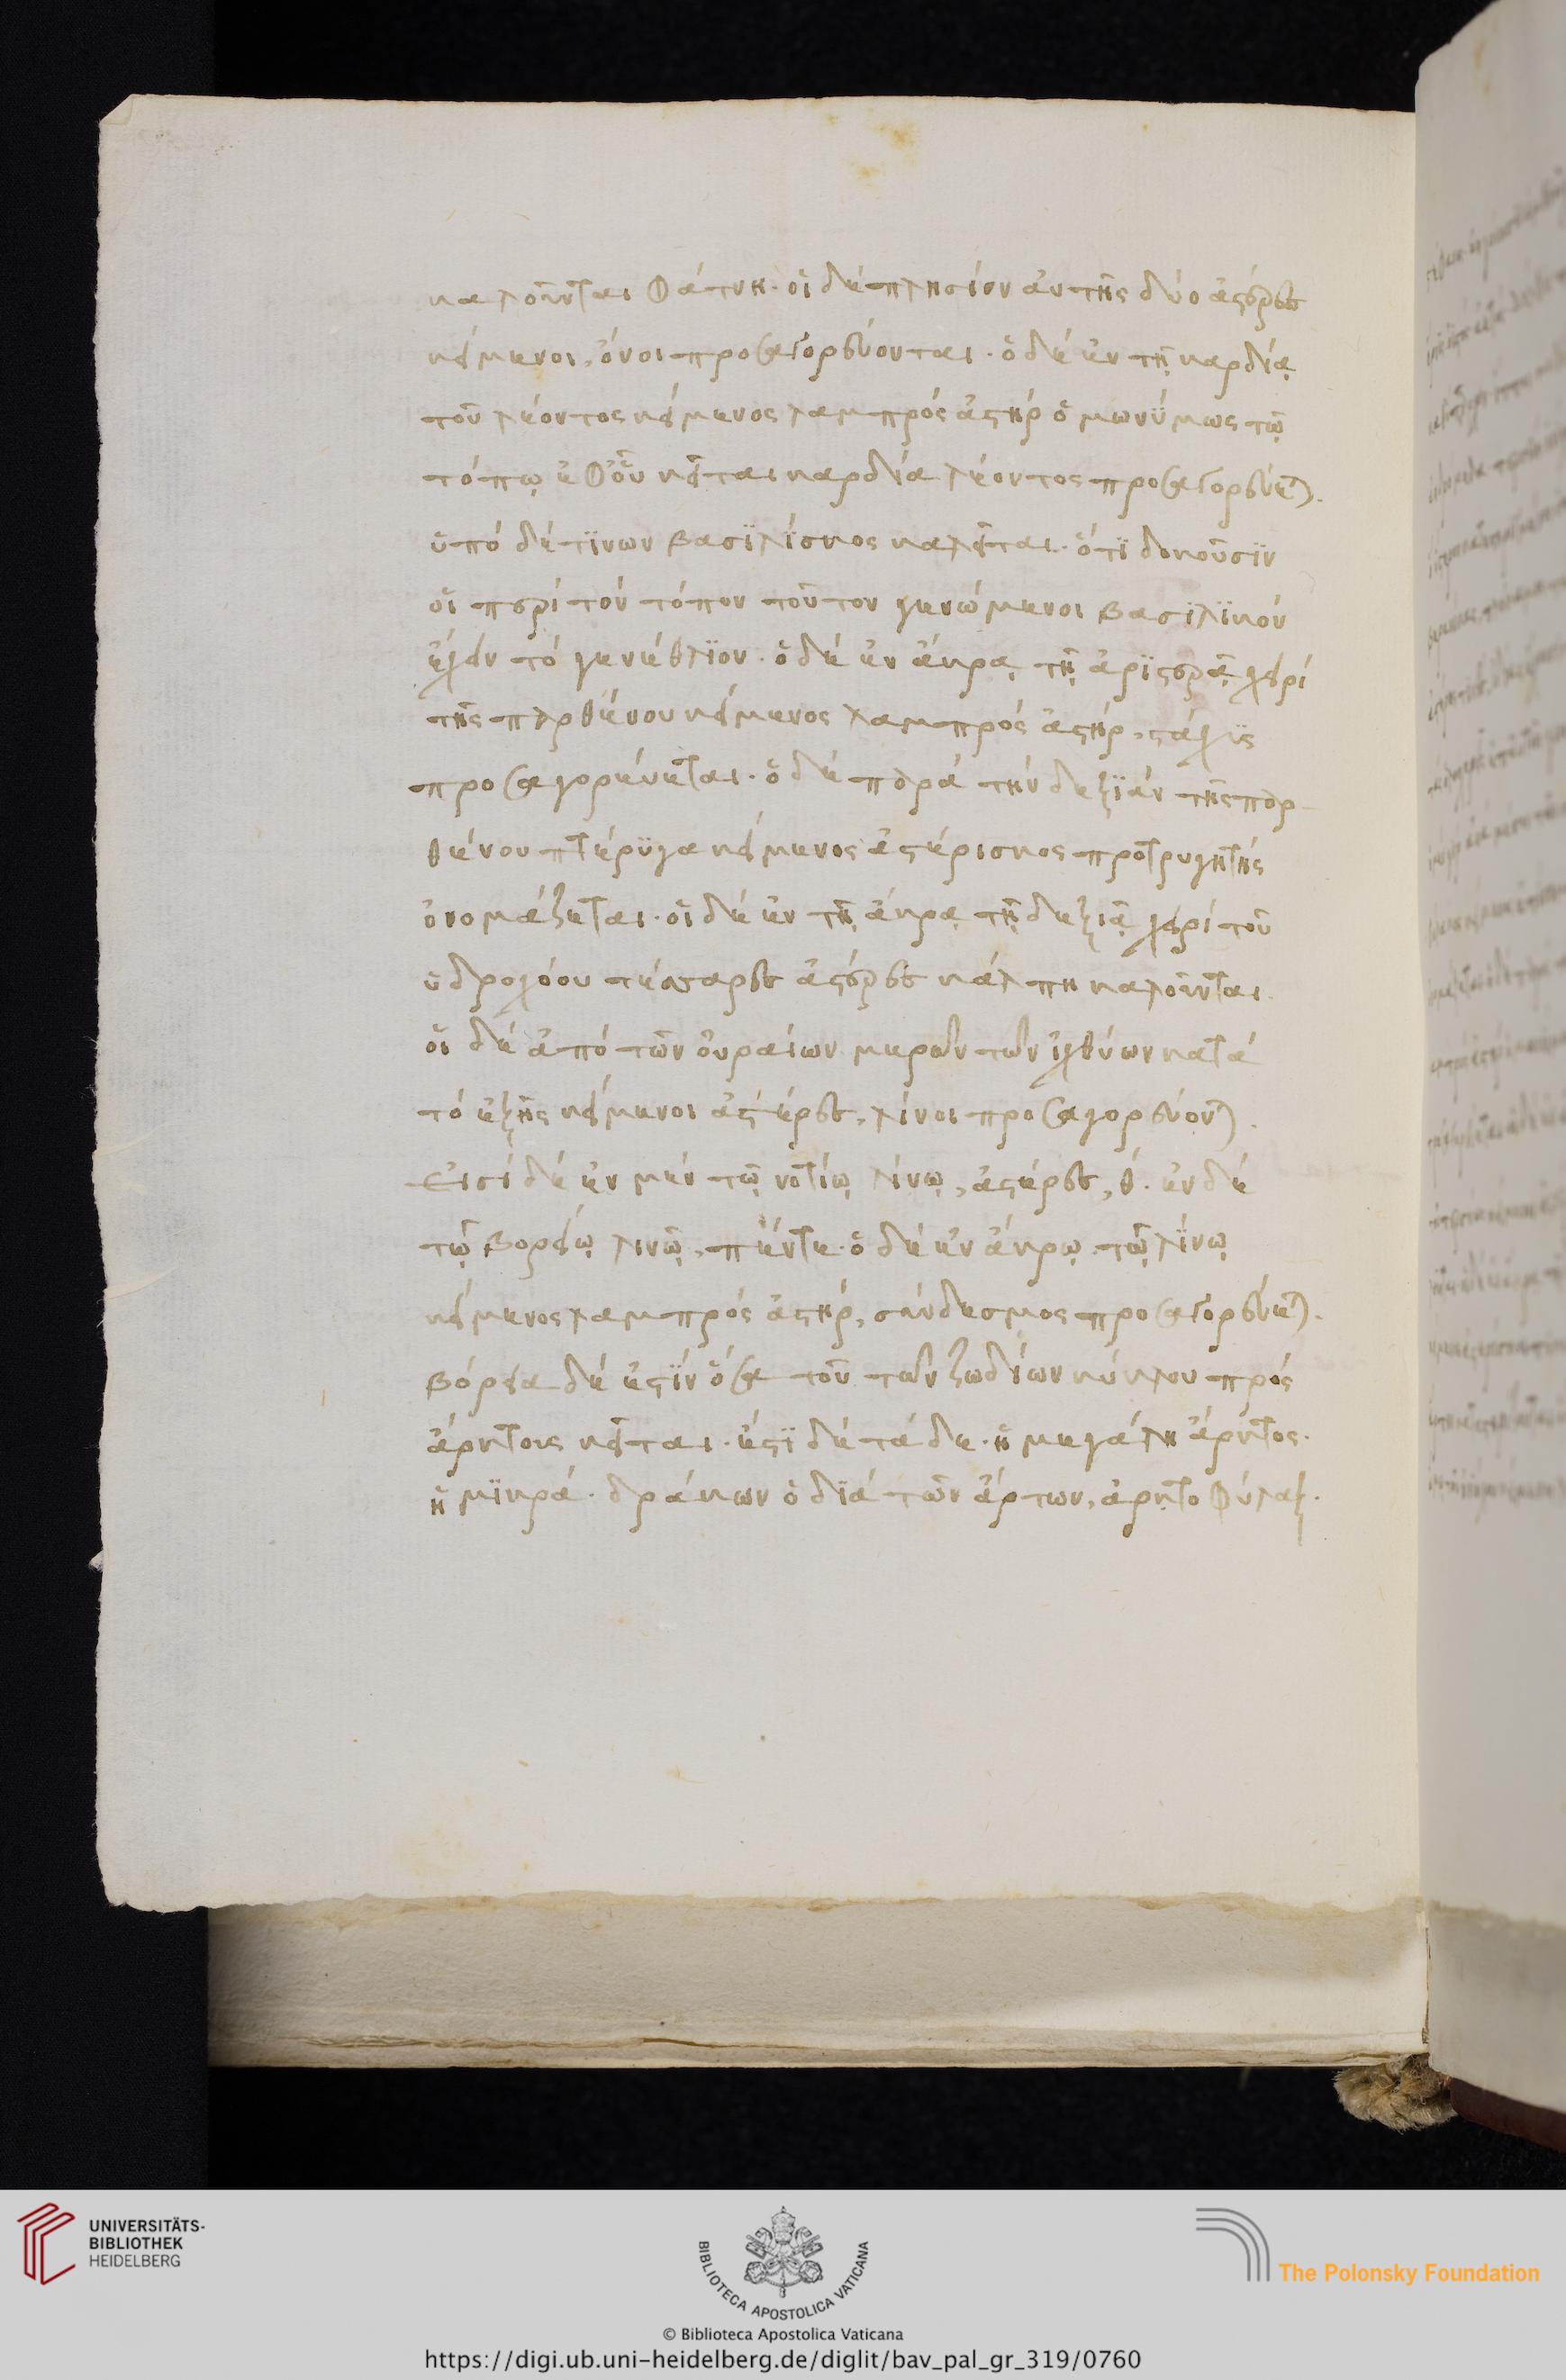 καλοῦνται φάτνη. οἱ δὲ πλησίον ἀυτῆς δύο ἀστέρες
κείμενοι, ὄνοι προσαγορεύονται. ὁ δὲ ἐν τῇ καρδίᾳ
τοῦ λέοντος κείμενος λαμπρὸς ἀστὴρ ὁμωνύμως τῷ
τόπῳ ἐφ' οὗ κεῖται καρδία λέοντος προσαγορεύεται.
ὑπὸ δέ τϊνων βασϊλΐσκος καλεῖται. ὅτϊ δοκοῦσϊν
οἱ περὶ τὸν τόπον τοῦτον γενώμενοι βασϊλϊκὸν
ἔχειν τὸ γενέθλϊον. ὁ δὲ ἐν ἄκρᾳ τῇ ἀρϊστερᾷ χειρὶ
τῆς παρθένου κείμενος λαμπρὸς ἀστήρ, στάχϋς
προσαγορέυεται. ὁ δὲ παρὰ τὴν δεξϊὰν τῆς παρ-
θένου πτέρϋγα κείμενος ἀστέρισκος προτρυγητής
ὀνομάζεται. οἱ δὲ ἐν τῇ ἄκρᾳ τῇ δεξιᾷ χειρὶ τοῦ
ὑδροχόου τέσσαρες ἀστέρες κάλπη καλοῦνται.
οἱ δὲ ἀπὸ τῶν οὐραίων μερῶν τῶν ἰχθύων κατὰ
τὸ ἑξῆς κείμενοι ἀστέρες, λίνοι προσαγορεύονται.
Εἰσὶ δὲ ἐν μὲν τῷ νοτίῳ λίνῳ, ἀστέρες, θ. ἐν δὲ
τῷ βορείῳ λινῷ, πέντε. ὁ δὲ ἐν ἄκρῳ τῷ λίνῳ
κείμενος λαμπρὸς ἀστήρ, σύνδεσμος προσαγορεύεται.
βόρεια δέ ἐστϊν ὅσα τοῦ τῶν ζωδίων κύκλου πρὸς
ἄρκτοις κεῖται. ἐστϊ δὲ τάδε. ἡ μεγάλη ἄρκτος.
ἡ μϊκρά. δράκων ὁ δϊὰ τῶν ἄρτων, ἀρκτοφύλαξ.
UNIVERSITÄTS-
BIBLIOTHEK
HEIDELBERG
BIBLIOTECA APOSTOLICA VATICANA
The Polonsky Foundation
© Biblioteca Apostolica Vaticana
https://digi.ub.uni-heidelberg.de/diglit/bav_pal_gr_319/0760